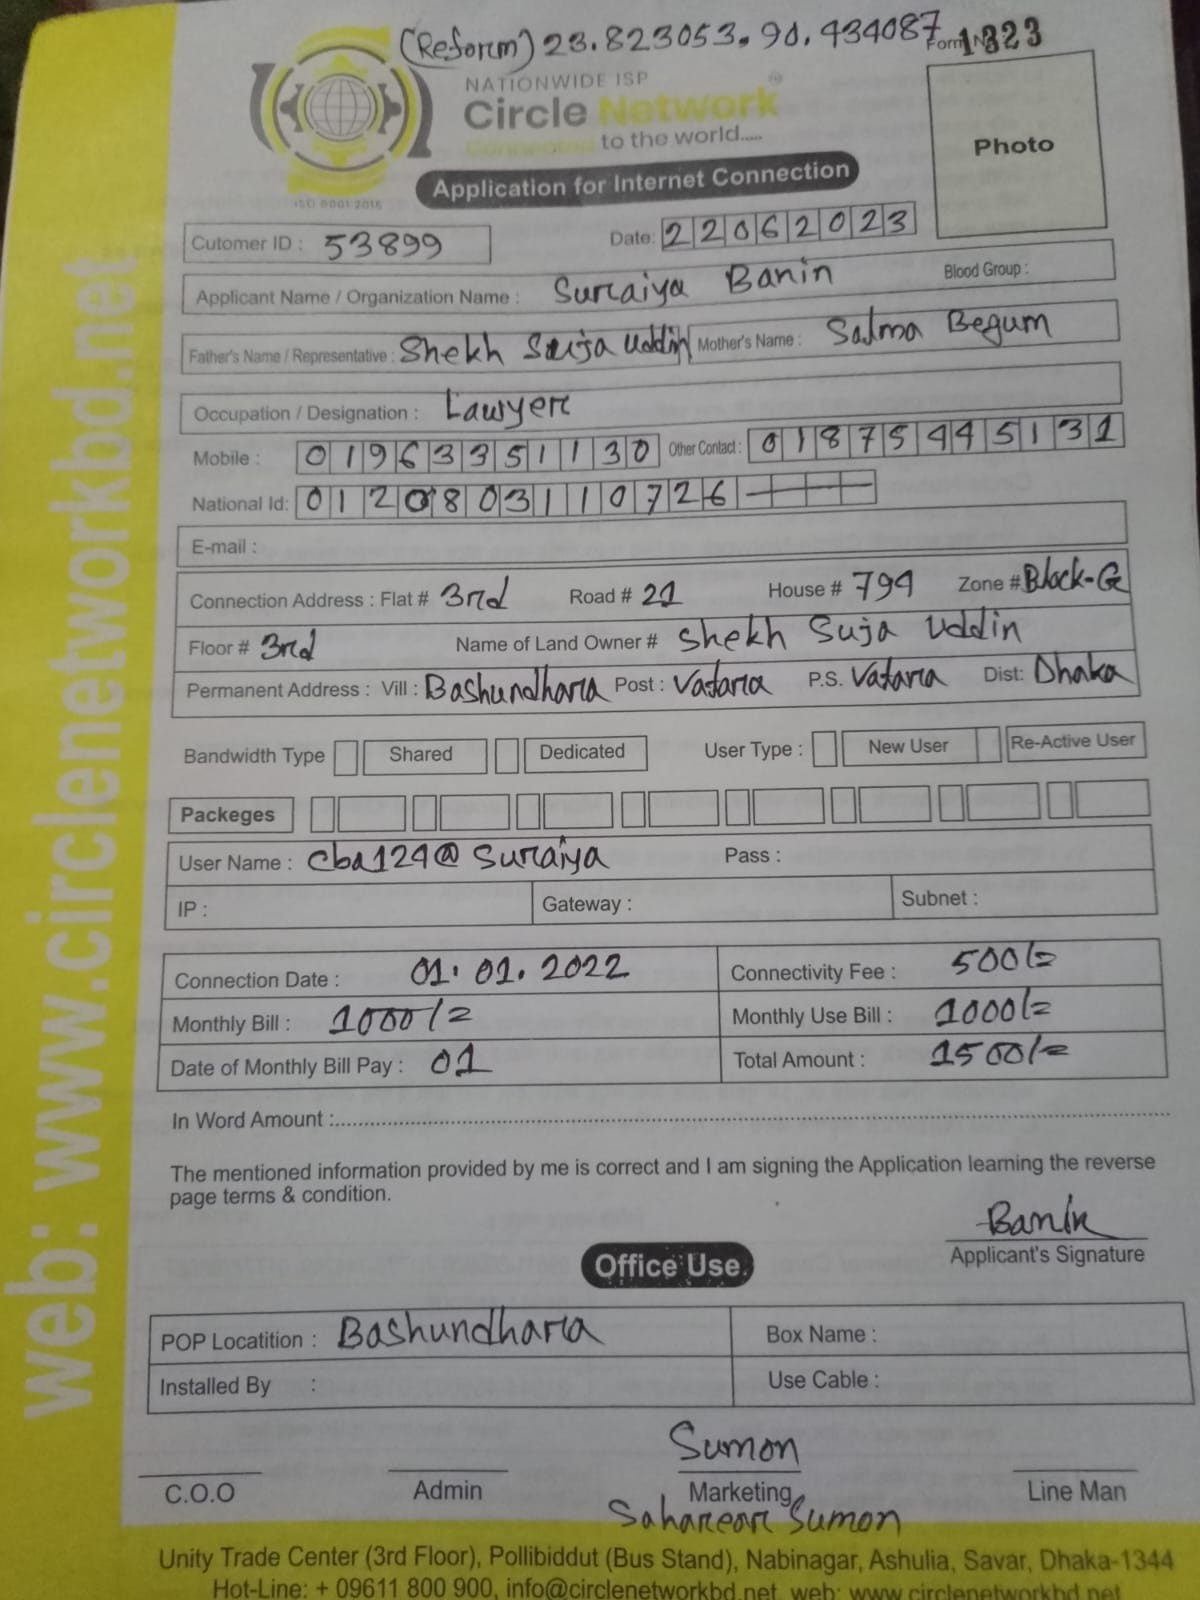 (Reform) 23.823053, 90.434087 Form No 1323
NATIONWIDE ISP
Circle Network
Connected to the world.....
ISO 9001:2015
Application for Internet Connection
Photo
Cutomer ID : 53899
Date: 22062023
Applicant Name / Organization Name : Suraiya Banin Blood Group :
Father's Name / Representative : Shekh Suja Uddin Mother's Name : Salma Begum
Occupation / Designation : Lawyer
Mobile : 01963351130 Other Contact : 01875445131
National Id: 0120803110726
E-mail :
Connection Address : Flat # 3rd Road # 21 House # 794 Zone # Block-G
Floor # 3rd Name of Land Owner # Shekh Suja Uddin
Permanent Address : Vill : Bashundhara Post : Vatara P.S. Vatara Dist: Dhaka
Bandwidth Type Shared Dedicated User Type : New User Re-Active User
Packeges
User Name : cba124@suraiya Pass :
IP : Gateway : Subnet :
Connection Date : 01.01.2022 Connectivity Fee : 500/=
Monthly Bill : 1000/= Monthly Use Bill : 1000/=
Date of Monthly Bill Pay : 01 Total Amount : 1500/=
In Word Amount :
The mentioned information provided by me is correct and I am signing the Application learning the reverse
page terms & condition.
Banin
Applicant's Signature
Office Use.
POP Locatition : Bashundhara Box Name :
Installed By : Use Cable :
Sumon
C.O.O Admin Marketing Line Man
Saharear Sumon
Unity Trade Center (3rd Floor), Pollibiddut (Bus Stand), Nabinagar, Ashulia, Savar, Dhaka-1344
Hot-Line: + 09611 800 900, info@circlenetworkbd.net, web: www.circlenetworkbd.net
web: www.circlenetworkbd.net